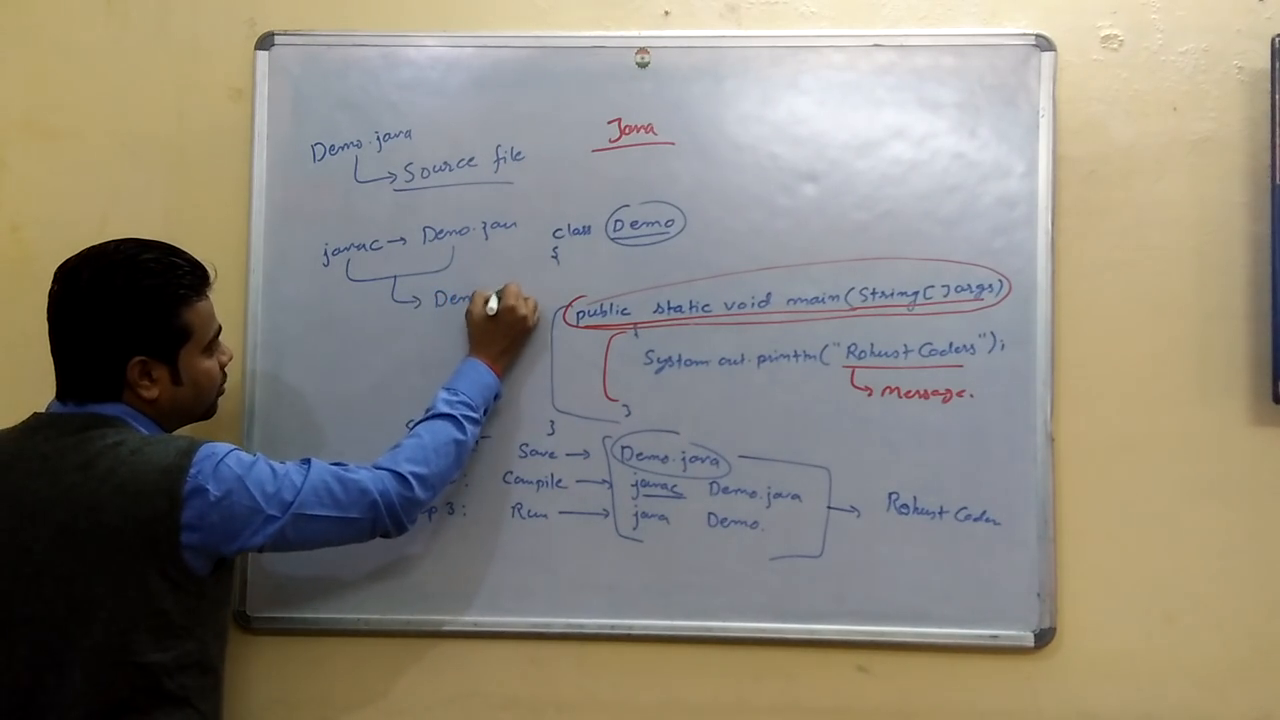 Java
Demo.java
Source file
javac → Demo.java
Dem
class Demo
{
public static void main(String[]args)
{
System.out.println("Robust Coders");
message.
}
}
Save → Demo.java
Compile → javac Demo.java
p 3: Run → java Demo.
→ Robust Coder